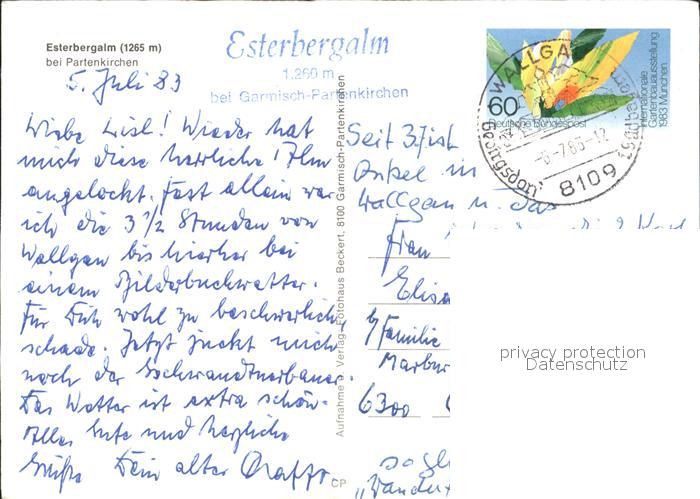 Esterbergalm (1265 m)
bei Partenkirchen
Esterbergalm
1.260 m
bei Garmisch-Partenkirchen
5. Juli 83
Liebe Lisl! Wieder hat
mich diese herrliche Alm
angelockt. Fast allein war
ich die 3 1/2 Stunden von
Wallgau bis hierher bei
einem Bilderbuchwetter.
Für Dich wohl zu beschwerlich
schade. Jetzt juckt mich
noch der Gschwandtnerbauer.
Das Wetter ist extra schön.
Alles Gute und herzliche
Grüße Dein alter
Aufnahme u. Verlag: Fotohaus Beckert, 8100 Garmisch-Partenkirchen
CP
Seit 3. ist
Onkel in
Wallgau u. das
Frau
Elisa
b/Familie
Marbur
6300
so gl
"Wander
60
Deutsche Bundespost
Internationale
Gartenbauausstellung
1983 München
WALLGAU
8109
privacy protection
Datenschutz